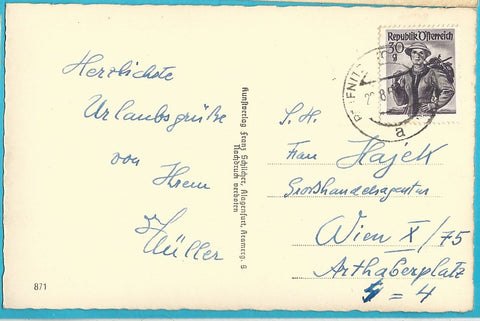 Herzlichste
Urlaubsgrüße
von Ihrem
Müller
871
Kunstverlag Franz Schilcher, Klagenfurt,
Nachdruck verboten
Republik Österreich
30
g
a
S. H.
Frau Hajek
Großhandelsagentur
Wien X/75
Arthaberplatz
= 4